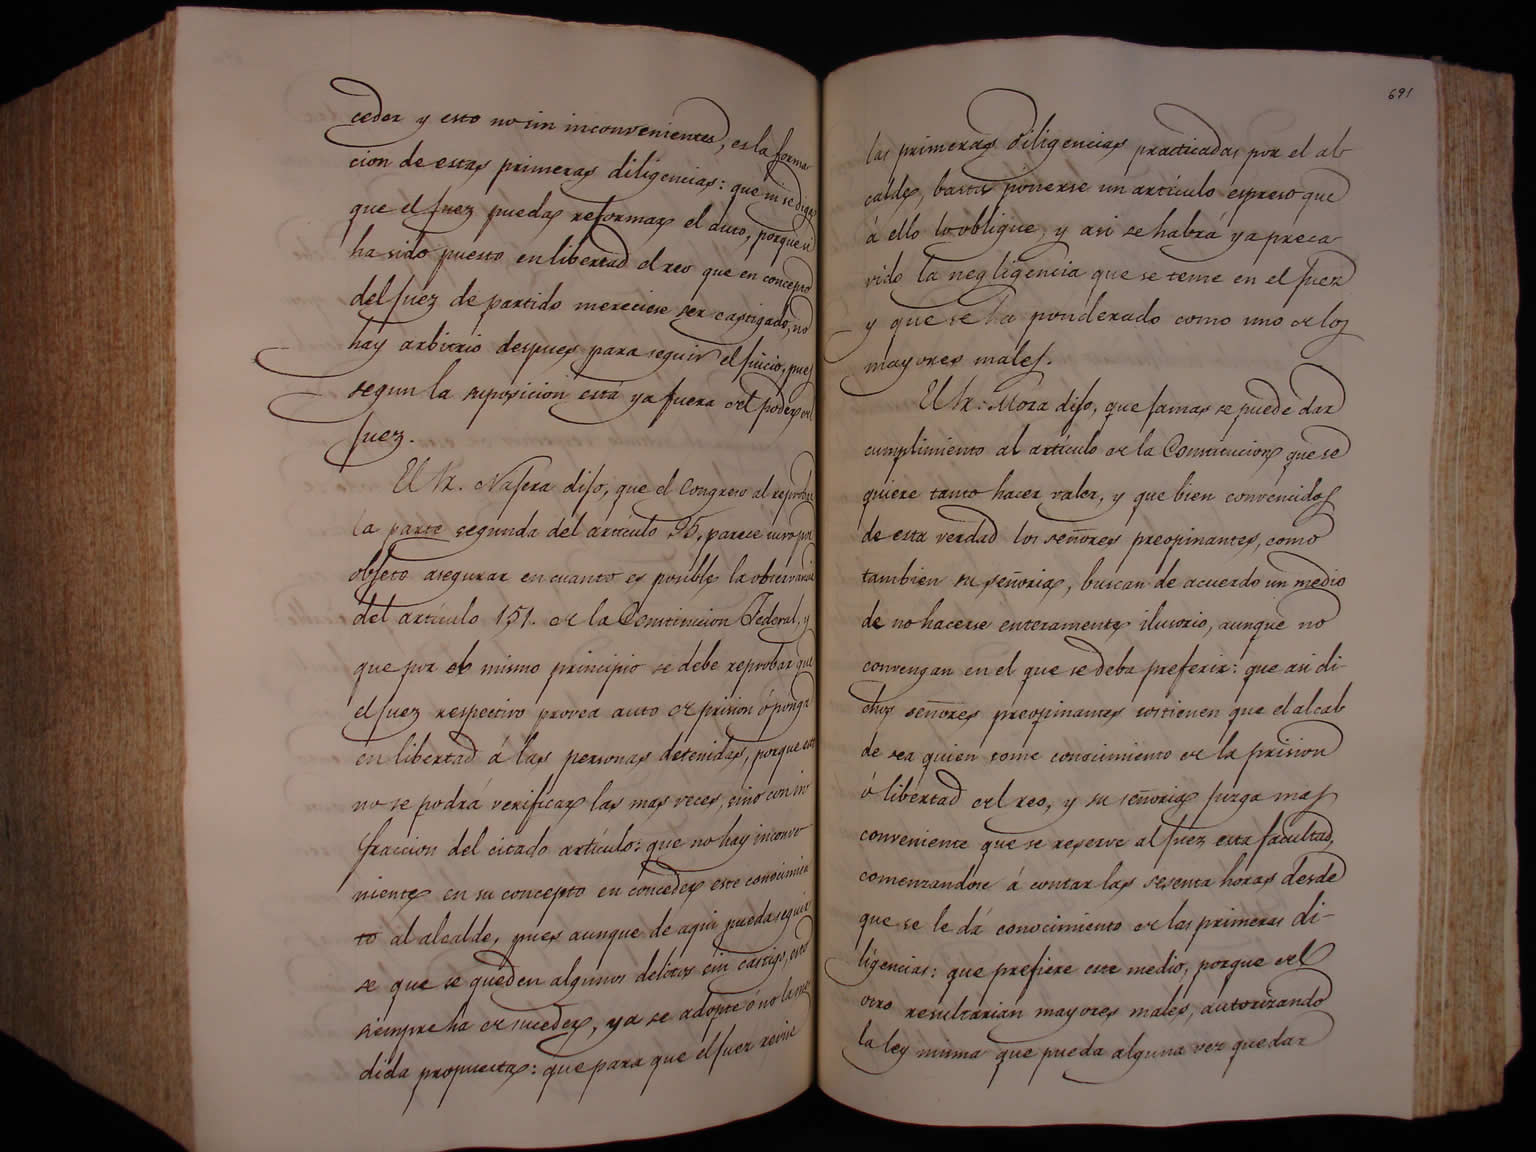 ceder y esto no sin inconvenientes, es la forma
cion de estas primeras diligencias: que ni se diga
que el Juez pueda reformar el auto, porque si
ha sido puesto en libertad el reo que en concepto
del Juez de partido mereciese ser castigado, no
hay arbitrio despues para seguir el juicio, pues
segun la suposicion está ya fuera del poder del
Juez.
El Sr. Najera dijo, que el Congreso al reprobar
la parte segunda del artículo 95, parece tuvo por
objeto asegurar en cuanto es posible la observancia
del artículo 151. de la Constitucion Federal, y
que por el mismo principio se debe reprobar que
el Juez respectivo provea auto de prision ó ponga
en libertad á las personas detenidas, porque esto
no se podrá verificar las mas veces, sino con in
fraccion del citado artículo: que no hay inconve
niente en su concepto en conceder este conocimien
to al alcalde, pues aunque de aqui pueda seguir
se que se queden algunos delitos sin castigo, esto
siempre ha de suceder, ya se adopte ó no la me
dida propuesta: que para que el Juez revise
691
las primeras diligencias practicadas por el al
calde, basta ponerse un artículo espreso que
á ello lo obligue, y asi se habrá ya preca
vido la negligencia que se teme en el Juez
y que se ha ponderado como uno de los
mayores males.
El Sr. Mora dijo, que jamas se puede dar
cumplimiento al artículo de la Constitucion que se
quiere tanto hacer valer, y que bien convencidos
de esta verdad los señores preopinantes, como
tambien su señoria, buscan de acuerdo un medio
de no hacerse enteramente ilusorio, aunque no
convengan en el que se deba preferir: que asi di-
chos señores preopinantes sostienen que el alcal
de sea quien tome conocimiento de la prision
ó libertad del reo, y su señoria juzga mas
conveniente que se reserve al Juez esta facultad,
comenzandose á contar las sesenta horas desde
que se le dá conocimiento de las primeras di-
ligencias: que prefiere este medio, porque del
otro resultarian mayores males, autorizando
la ley misma que pueda alguna vez quedar